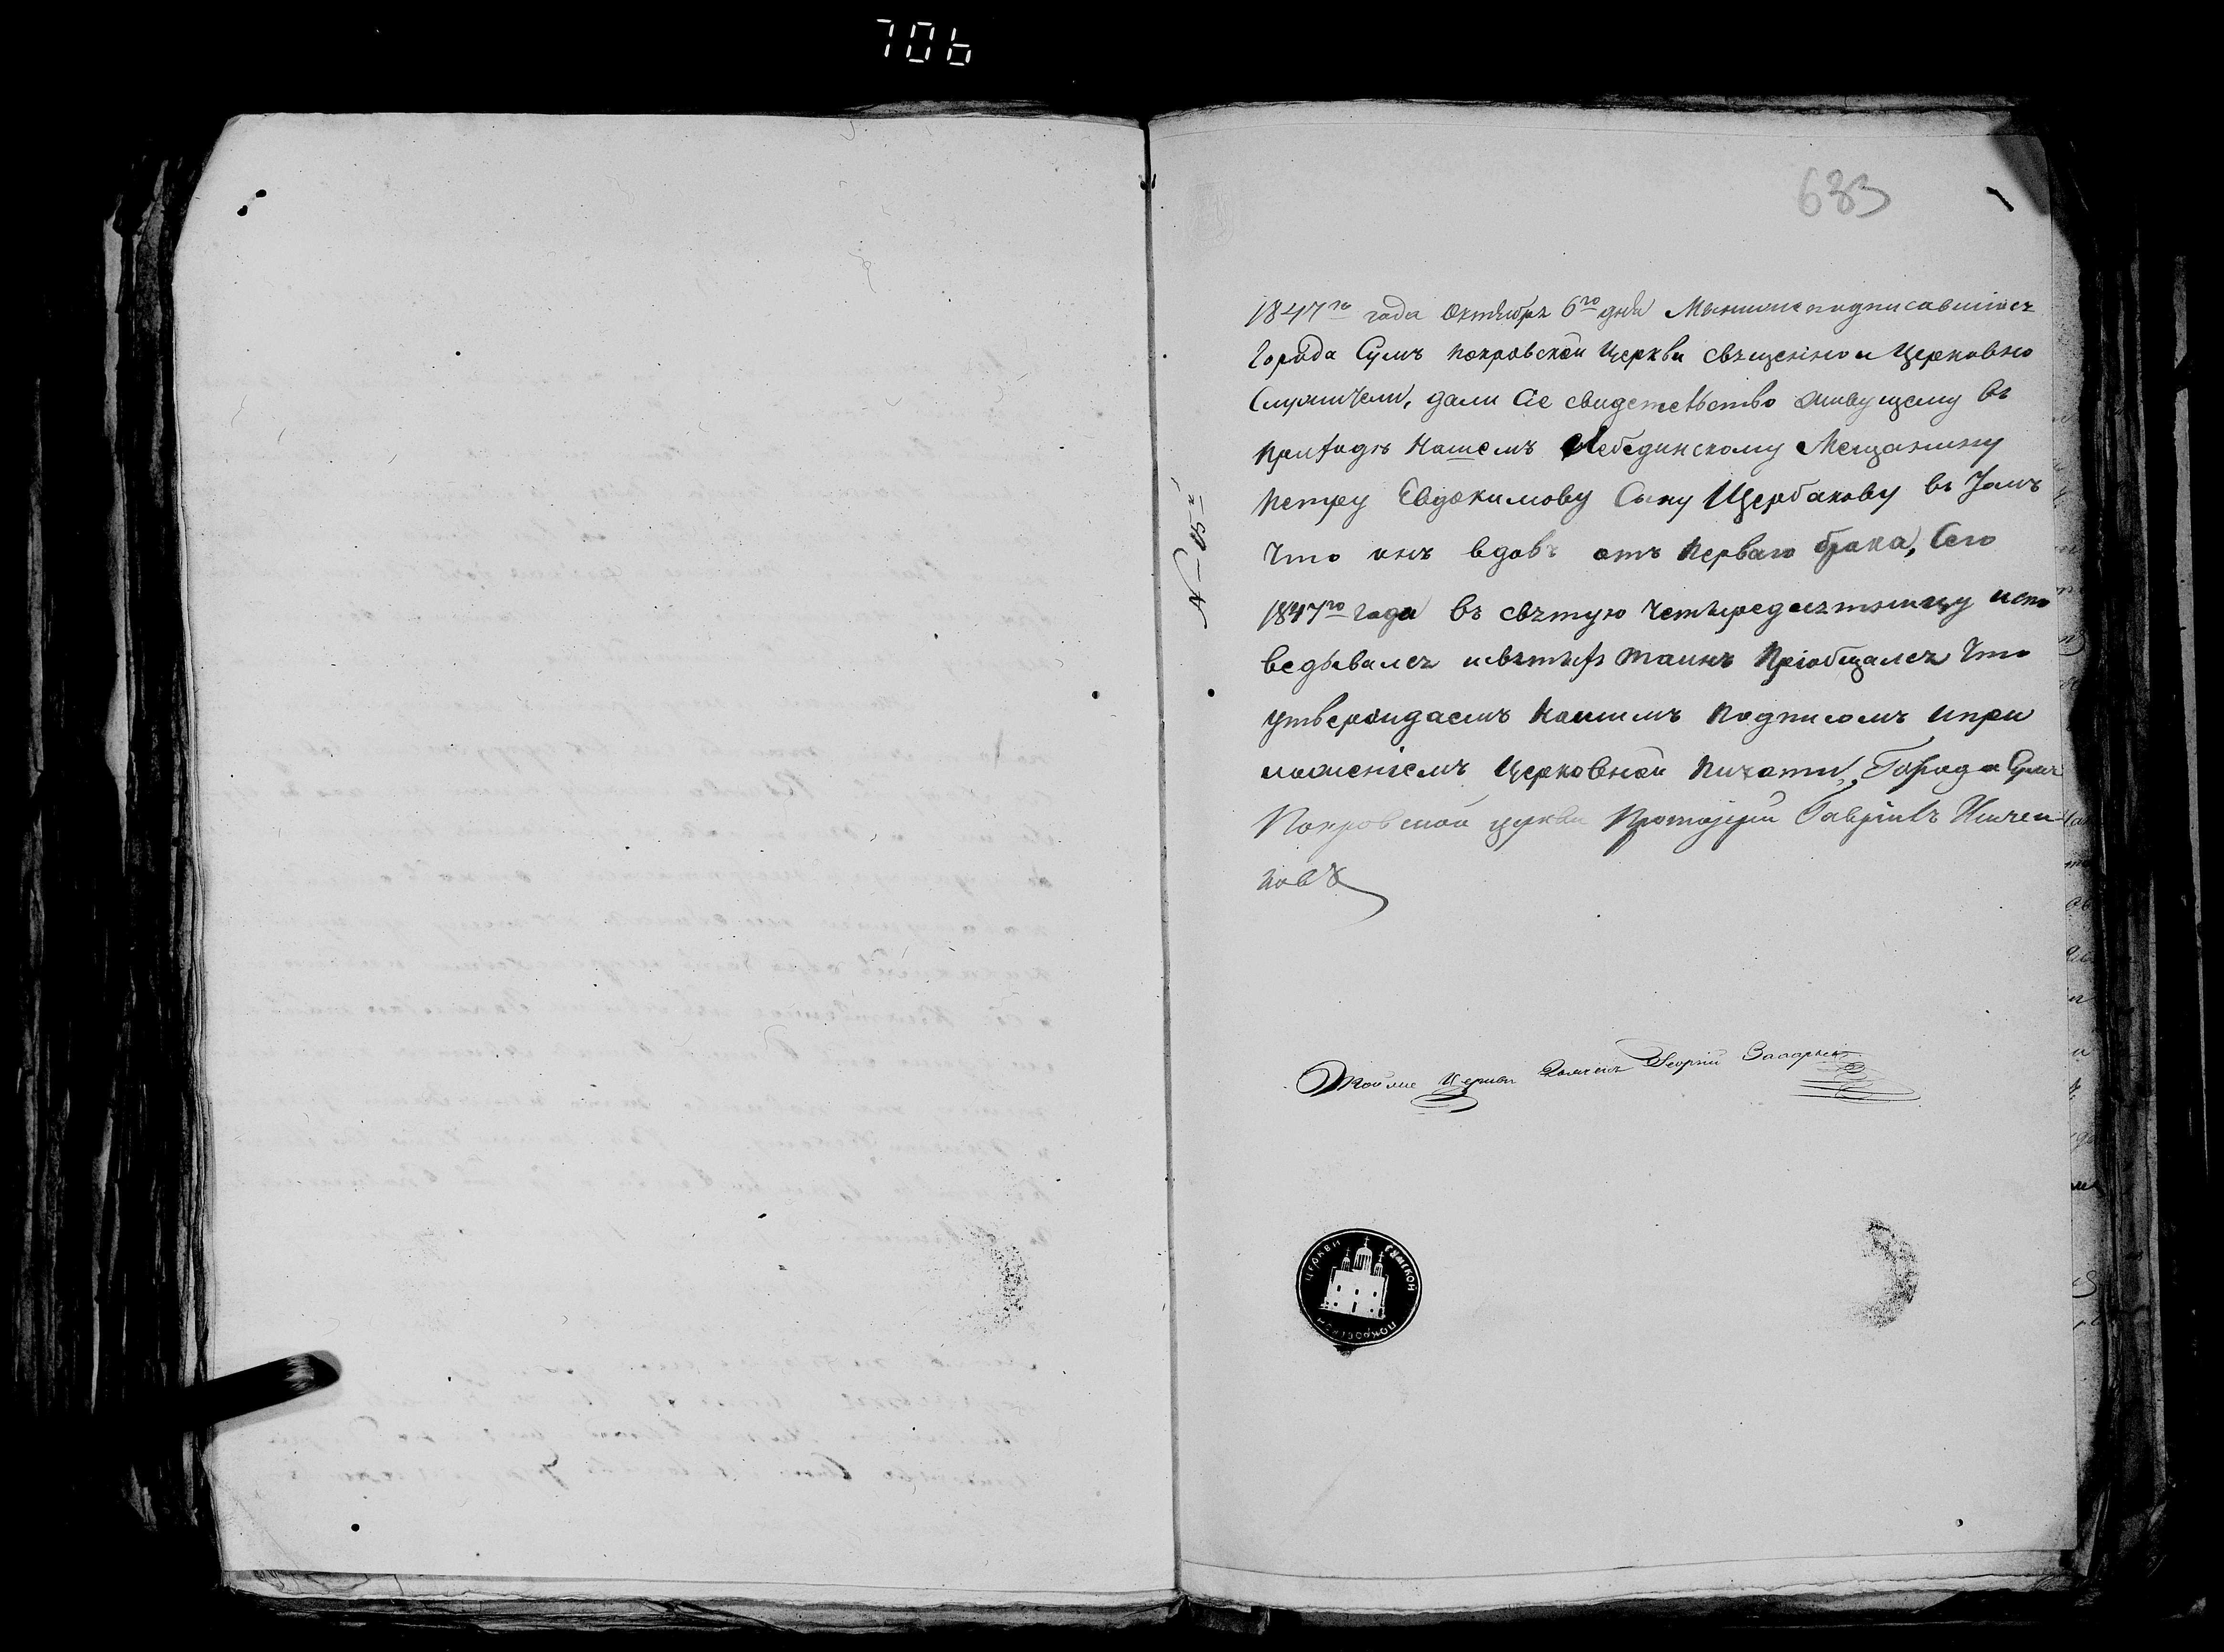 706
633
1847го года Октября 6го дня Мынижеподписавшіеся
Города Сумъ покровской Церкви свящеnно и Церковно
Служители, дали Сіе свидетельство живущему въ
приходѣ Нашемъ Лебединскому Мещанину
Петру Евдокимову Сыну Щербакову въ Томъ
Что онъ вдовъ отъ Перваго брака, Сего
1847го года въ святую Четыредесятницу испо
ведывался исвятыхъ таинъ Пріобщался Что
утверждаемъ Нашимъ Подписомъ ипри
ложеніемъ Церковной Пичати, Города Сумъ
Покровской церкви Протоіерей Гавріилъ
новъ
Тойже Церкви Георгій
ЦЕРКВИ СУМСКОЙ ПОКРОВСКОЙ